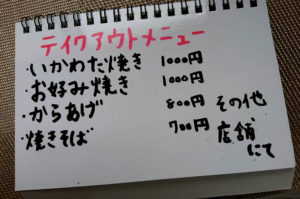 テイクアウトメニュー
・いかわた焼き 1000円
・お好み焼き 1000円
・からあげ 800円
・焼きそば 700円
その他
店舗
にて